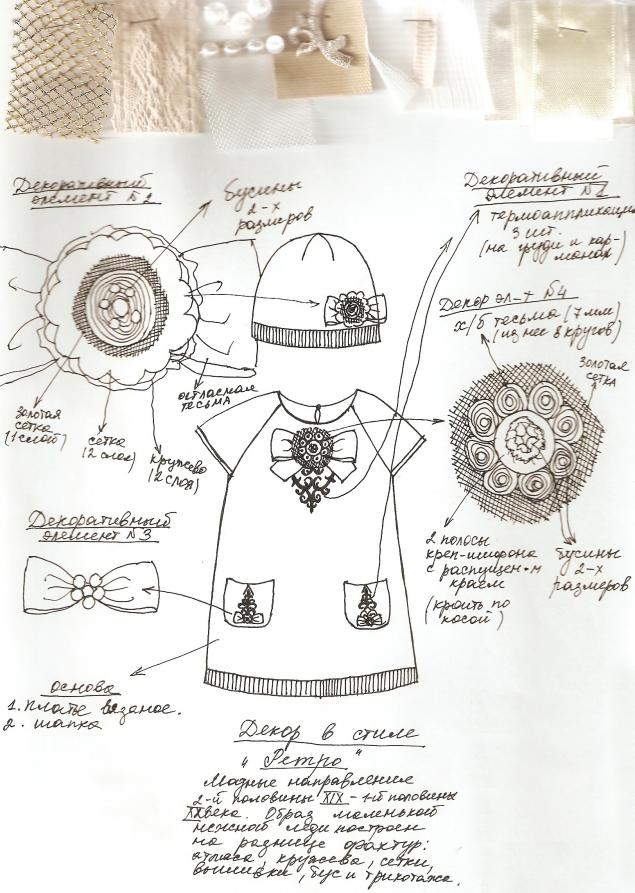 Декоративный
элемент №2
бусины
2-х
размеров
Декоративный
элемент №1
термоаппликации
3 шт.
(на груди и кар-
манах)
Декор эл-т №4
х/б тесьма (7 мм)
(из нее 8 кругов)
золотая
сетка
атласная
тесьма
золотая
сетка
(1 слой)
сетка
(2 слоя)
кружево
(2 слоя)
Декоративный
элемент №3
2 полосы
креп-шифона
с распущен-м
краем
(кроить по
косой)
бусины
2-х
размеров
основа
1. Платье вязаное.
2. шапка
Декор в стиле
"Ретро"
Модные направления
2-й половины XIX - 1-й половины
XX века. Образ маленькой
нежной леди построен
на разнице фактур:
атласа, кружева, сетки,
вышивки, бус и трикотажа.